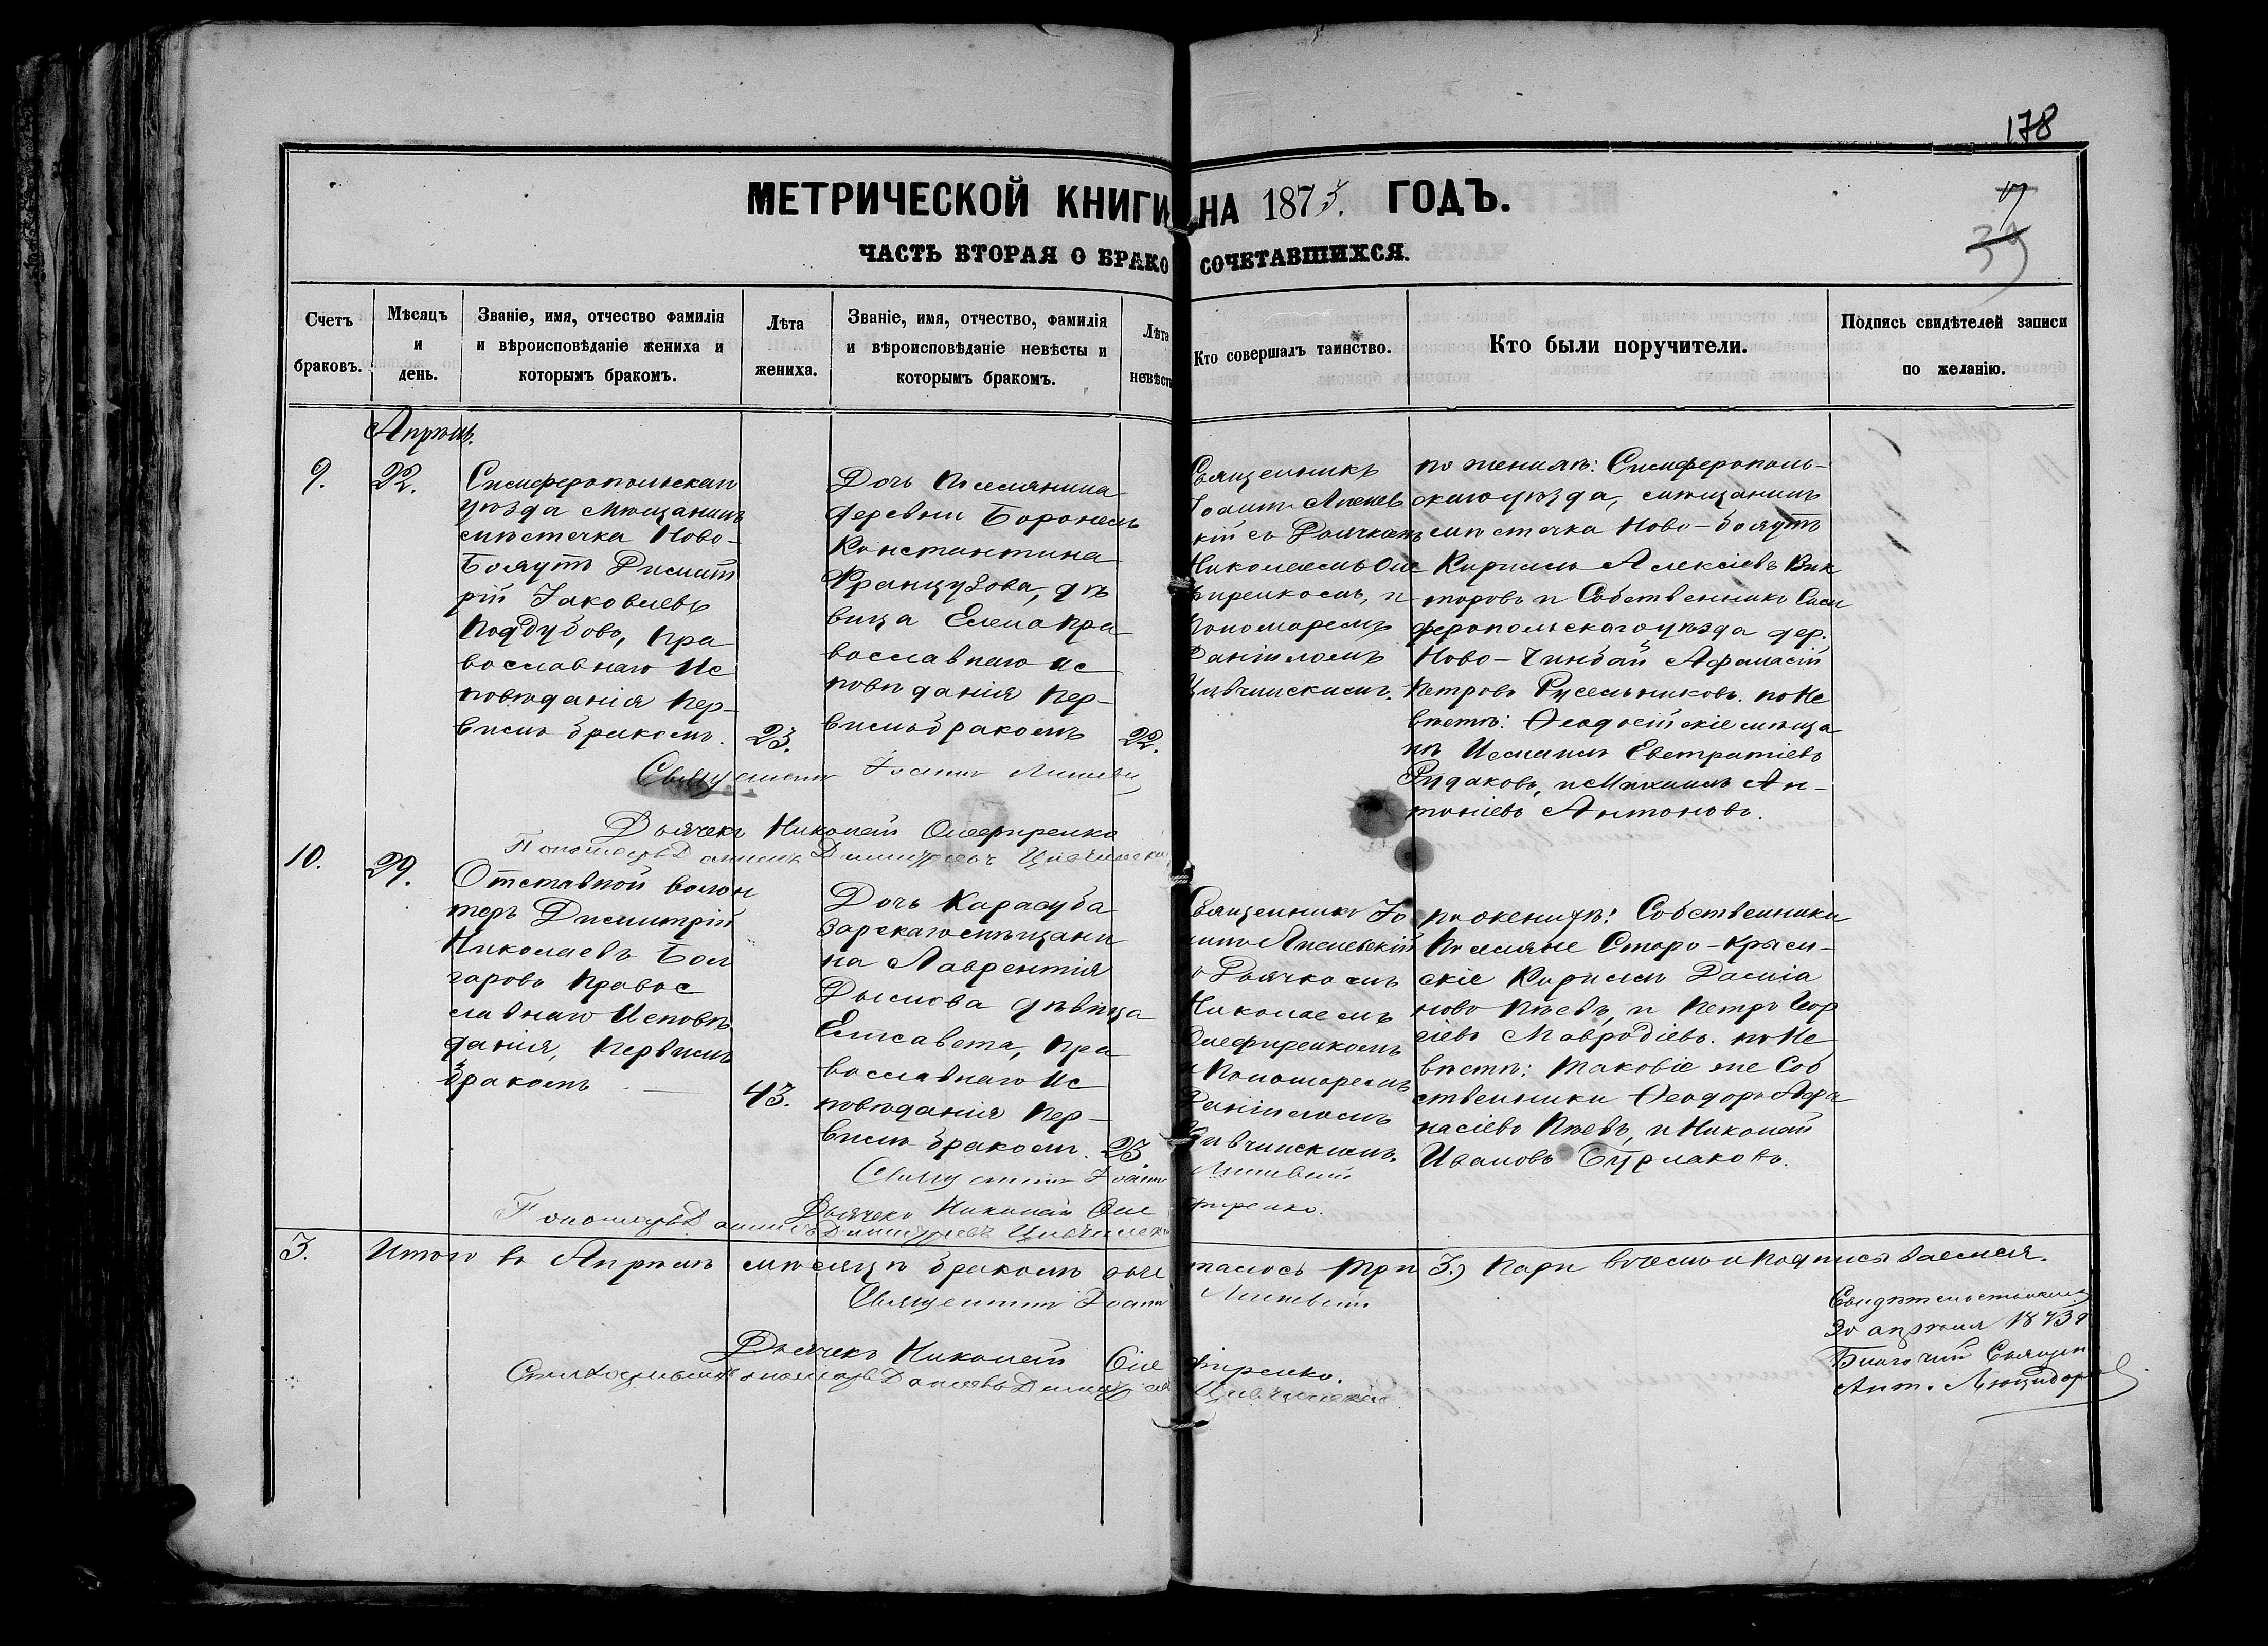 178
МЕТРИЧЕСКОЙ КНИГИ НА 1873. ГОДЪ.
17
39
ЧАСТЬ ВТОРАЯ О БРАКОСОЧЕТАВШИХСЯ.
Счетъ браковъ.
Мѣсяцъ и день.
Званіе, имя, отчество фамилія
и вѣроисповѣданіе жениха и
которымъ бракомъ.
Лѣта жениха.
Званіе, имя, отчество, фамилія
и вѣроисповѣданіе невѣсты и
которымъ бракомъ.
Лѣта невѣсты
Кто совершалъ таинство.
Кто были поручители.
Подпись свидѣтелей записи
по желанію.
Апрѣль.
9.
22.
Симферопольскаго
уѣзда мѣщанинъ
мѣстечка Ново-
Димит
рій Іаковлевъ
Поддубовъ, пра
вославнаго ис
повѣданія пер-
вымъ бракомъ.
23.
Дочь поселянина
деревни
Константина
Французова, дѣ
вица Елена пра
вославнаго ис
повѣданія пер-
вымъ бракомъ
22.
Священникъ
Іоаннъ
кій съ Дьячкомъ
Николаемъ Оле
фиренкомъ, и
Пономаремъ
Даніиломъ
Цивчинскимъ.
по женихѣ: Симферополь-
скаго уѣзда, мѣщанинъ
мѣстечка Ново-
Кириллъ Алексіевъ Вик
торовъ и Собственникъ Сим
феропольскаго уѣзда дер.
Ново- Афанасій
Петровъ Русельниковъ. по не
вѣстѣ: Ѳеодосійскіе мѣща
не Евстратіевъ
Рудаковъ, и Михаилъ Ан-
тоніевъ Антоновъ.
Священникъ Іоаннъ
Дьячекъ Николай Олефиренко
Пономарь Даніилъ Димитріевъ Цивчинскій
10.
29.
Отставной волон
теръ Димитрій
Николаевъ Бол
гаровъ правос
лавнаго исповѣ
данія, первымъ
бракомъ
43.
Дочь Карасуба
зарскаго мѣщани
на Лаврентія
Дымова дѣвица
Елисавета, пра
вославнаго ис
повѣданія пер-
вымъ бракомъ.
23
Священникъ Іо
аннъ
съ Дьячкомъ
Николаемъ
Олефиренкомъ
и Пономаремъ
Даніиломъ
Цивчинскимъ.
по женихѣ: Собственники
поселяне Старо-Крым-
скіе Кириллъ Даміа
новъ и Петръ Геор
гіевъ Мавродіевъ. по не
вѣстѣ: таковіе же Соб
ственники Ѳеодоръ Афа
насіевъ и Николай
Ивановъ Бурлаковъ.
Священникъ Іоаннъ
Дьячекъ Николай Олефиренко.
Пономарь Даніилъ Димитріевъ Цивчинскій
3.
Итого въ Апрѣлѣ мѣсяцѣ бракомъ сочеталось три 3.) пары въ чемъ и подписываемся.
Священникъ Іоаннъ
Дьячекъ Николай Олефиренко.
Пономарь Даніилъ Димитріевъ Цивчинскій
30 апрѣля 1873
Благочин. Священ.
Ант.